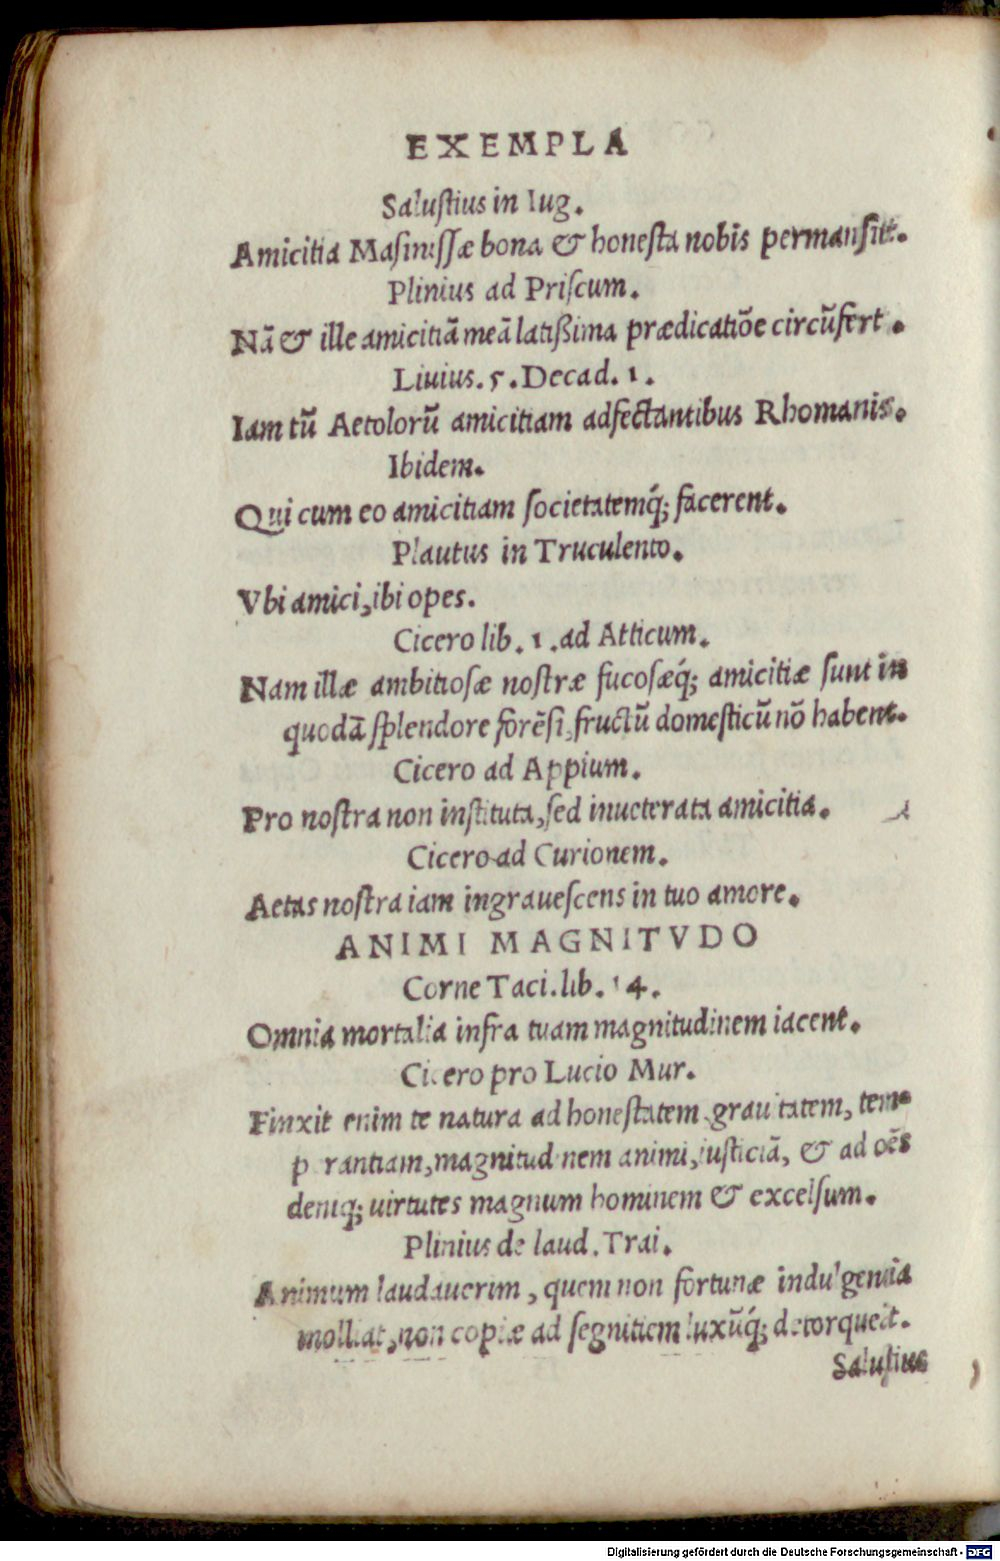 EXEMPLA
Saluſtius in Iug.
Amicitia Maſiniſſæ bona & honeſta nobis permanſit.
Plinius ad Priſcum.
Nã & ille amicitiã meã latißima prædicatiõe circũfert.
Liuius. 5. Decad. 1.
Iam tũ Aetolorũ amicitiam adfectantibus Rhomanis.
Ibidem.
Qui cum eo amicitiam ſocietatemq́; facerent.
Plautus in Truculento.
Vbi amici, ibi opes.
Cicero lib. 1. ad Atticum.
Nam illæ ambitioſæ noſtræ fucoſæq́; amicitiæ ſunt in
quodã ſplendore forẽſi, fructũ domeſticũ nõ habent.
Cicero ad Appium.
Pro noſtra non inſtituta, ſed inueterata amicitia.
Cicero ad Curionem.
Aetas noſtra iam ingraueſcens in tuo amore.
ANIMI MAGNITVDO
Corne Taci. lib. 14.
Omnia mortalia infra tuam magnitudinem iacent.
Cicero pro Lucio Mur.
Finxit enim te natura ad honeſtatem, grauitatem, tem=
perantiam, magnitudinem animi, iuſticiã, & ad oẽs
deniq; uirtutes magnum hominem & excelſum.
Plinius de laud. Trai.
Animum laudauerim, quem non fortunæ indulgentia
molliat, non copiæ ad ſegnitiem luxũq́; detorqueat.
Saluſtius
Digitalisierung gefördert durch die Deutsche Forschungsgemeinschaft - DFG